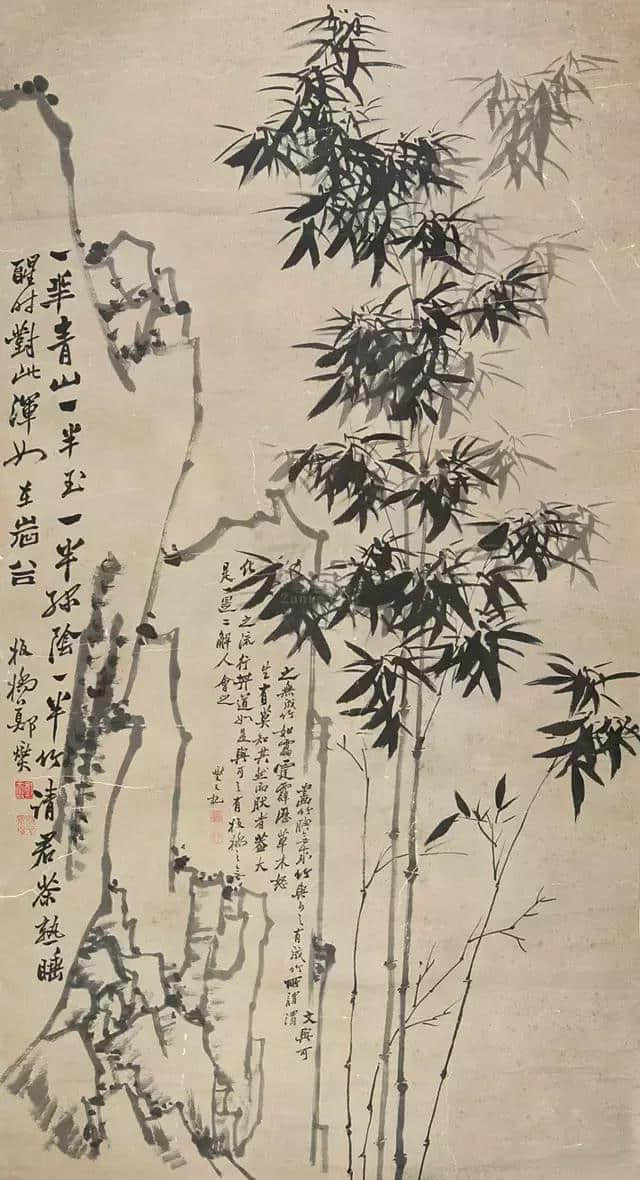 文與可
畫竹胸竹與可之有成竹所謂渭
之無成竹如雷霆霹靂草木怒
生有莫知其然而然者蓋大
化之流行其道如是與可之有板橋之
是一是二解人會之
燮又記
一半青山一半玉一半綠陰一半竹請君茶熟睡
醒时對此渾如在岩谷
板橋鄭燮